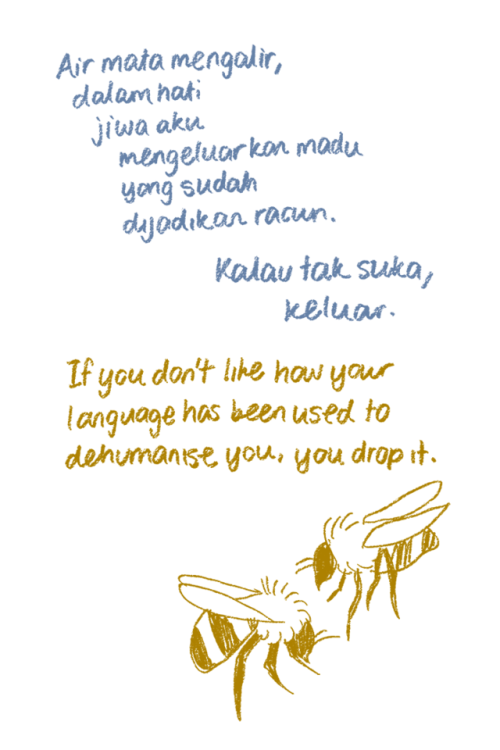 Air mata mengalir,
dalam hati
jiwa aku
mengeluarkan madu
yang sudah
dijadikan racun.
Kalau tak suka,
keluar.
If you don't like how your
language has been used to
dehumanise you, you drop it.